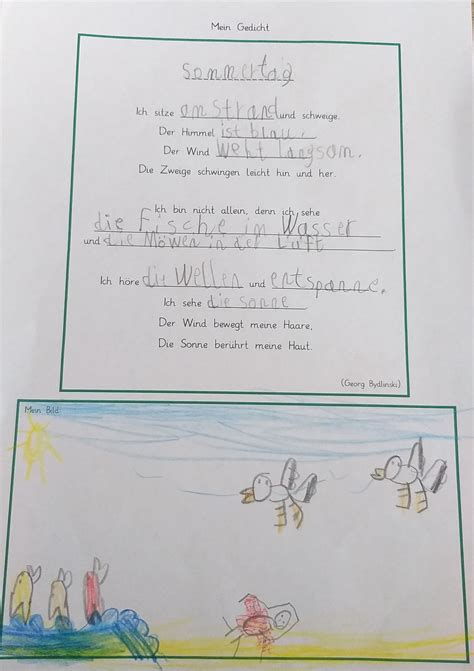 Mein Gedicht
Sommertag
Ich sitze am Strand und schweige.
Der Himmel ist blau.
Der Wind weht langsam.
Die Zweige schwingen leicht hin und her.
Ich bin nicht allein, denn ich sehe
die Fische im Wasser
und die Möwen in der Luft
Ich höre die Wellen und entspanne.
Ich sehe die Sonne
Der Wind bewegt meine Haare,
Die Sonne berührt meine Haut.
(Georg Bydlinski)
Mein Bild: